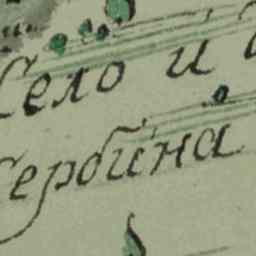 Село и
Сербина